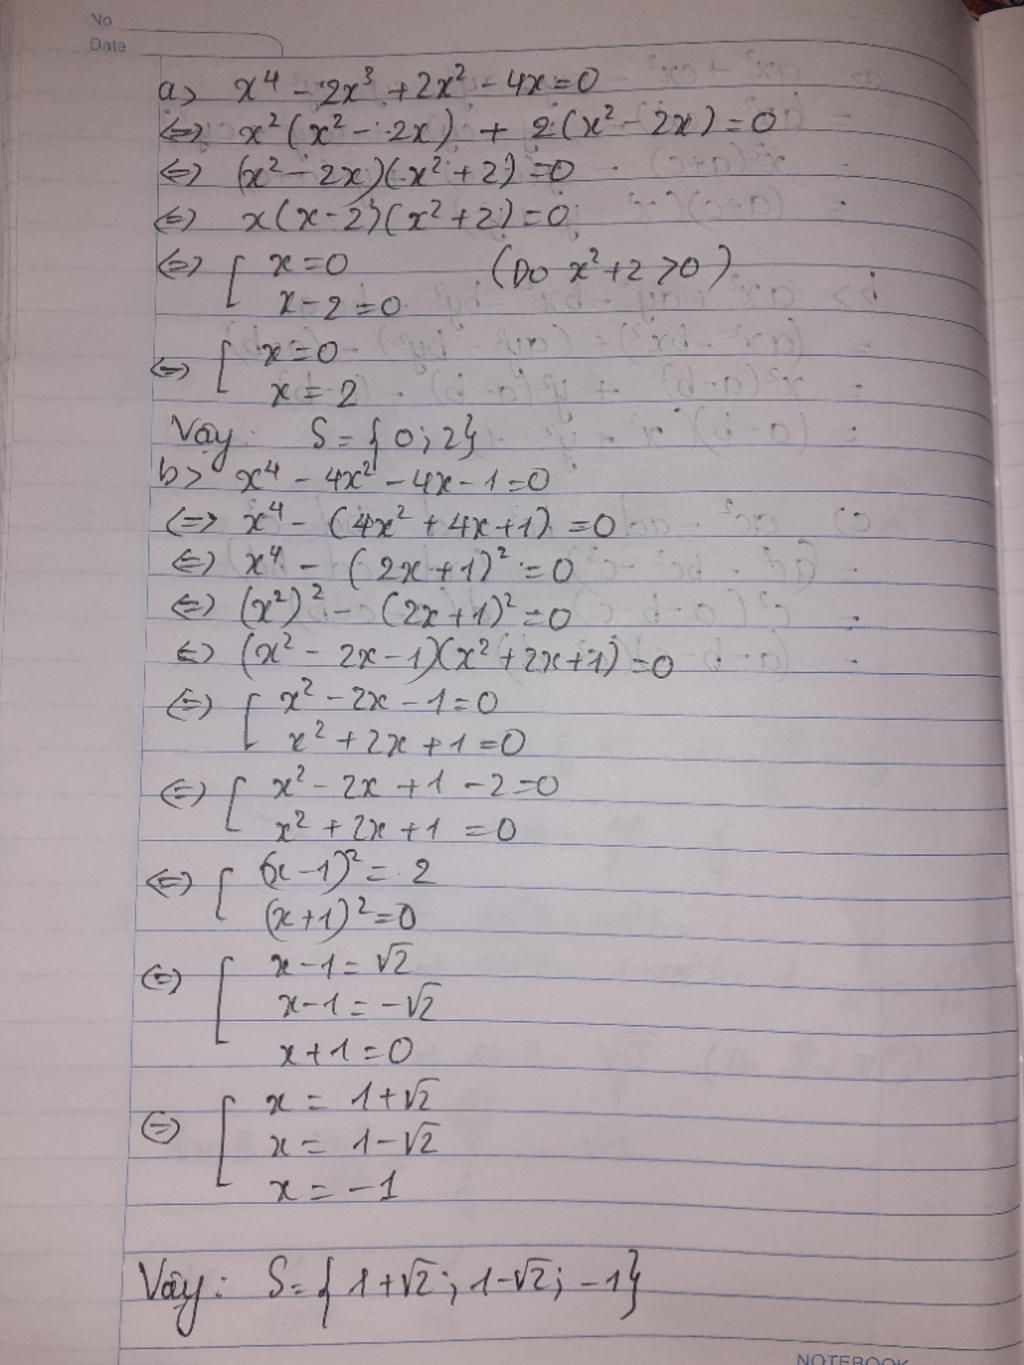 No
Date
a> x⁴ - 2x³ + 2x² - 4x = 0
<=> x²(x² - 2x) + 2(x² - 2x) = 0
<=> (x² - 2x)(x² + 2) = 0
<=> x(x-2)(x² + 2) = 0
<=> [ x = 0 (Do x² + 2 > 0)
x - 2 = 0
<=> [ x = 0
x = 2
Vậy: S = {0; 2}
b> x⁴ - 4x² - 4x - 1 = 0
<=> x⁴ - (4x² + 4x + 1) = 0
<=> x⁴ - (2x + 1)² = 0
<=> (x²)² - (2x + 1)² = 0
<=> (x² - 2x - 1)(x² + 2x + 1) = 0
<=> [ x² - 2x - 1 = 0
x² + 2x + 1 = 0
<=> [ x² - 2x + 1 - 2 = 0
x² + 2x + 1 = 0
<=> [ (x - 1)² = 2
(x + 1)² = 0
<=> [ x - 1 = √2
x - 1 = -√2
x + 1 = 0
<=> [ x = 1 + √2
x = 1 - √2
x = -1
Vậy: S = {1 + √2; 1 - √2; -1}
NOTEBOOK